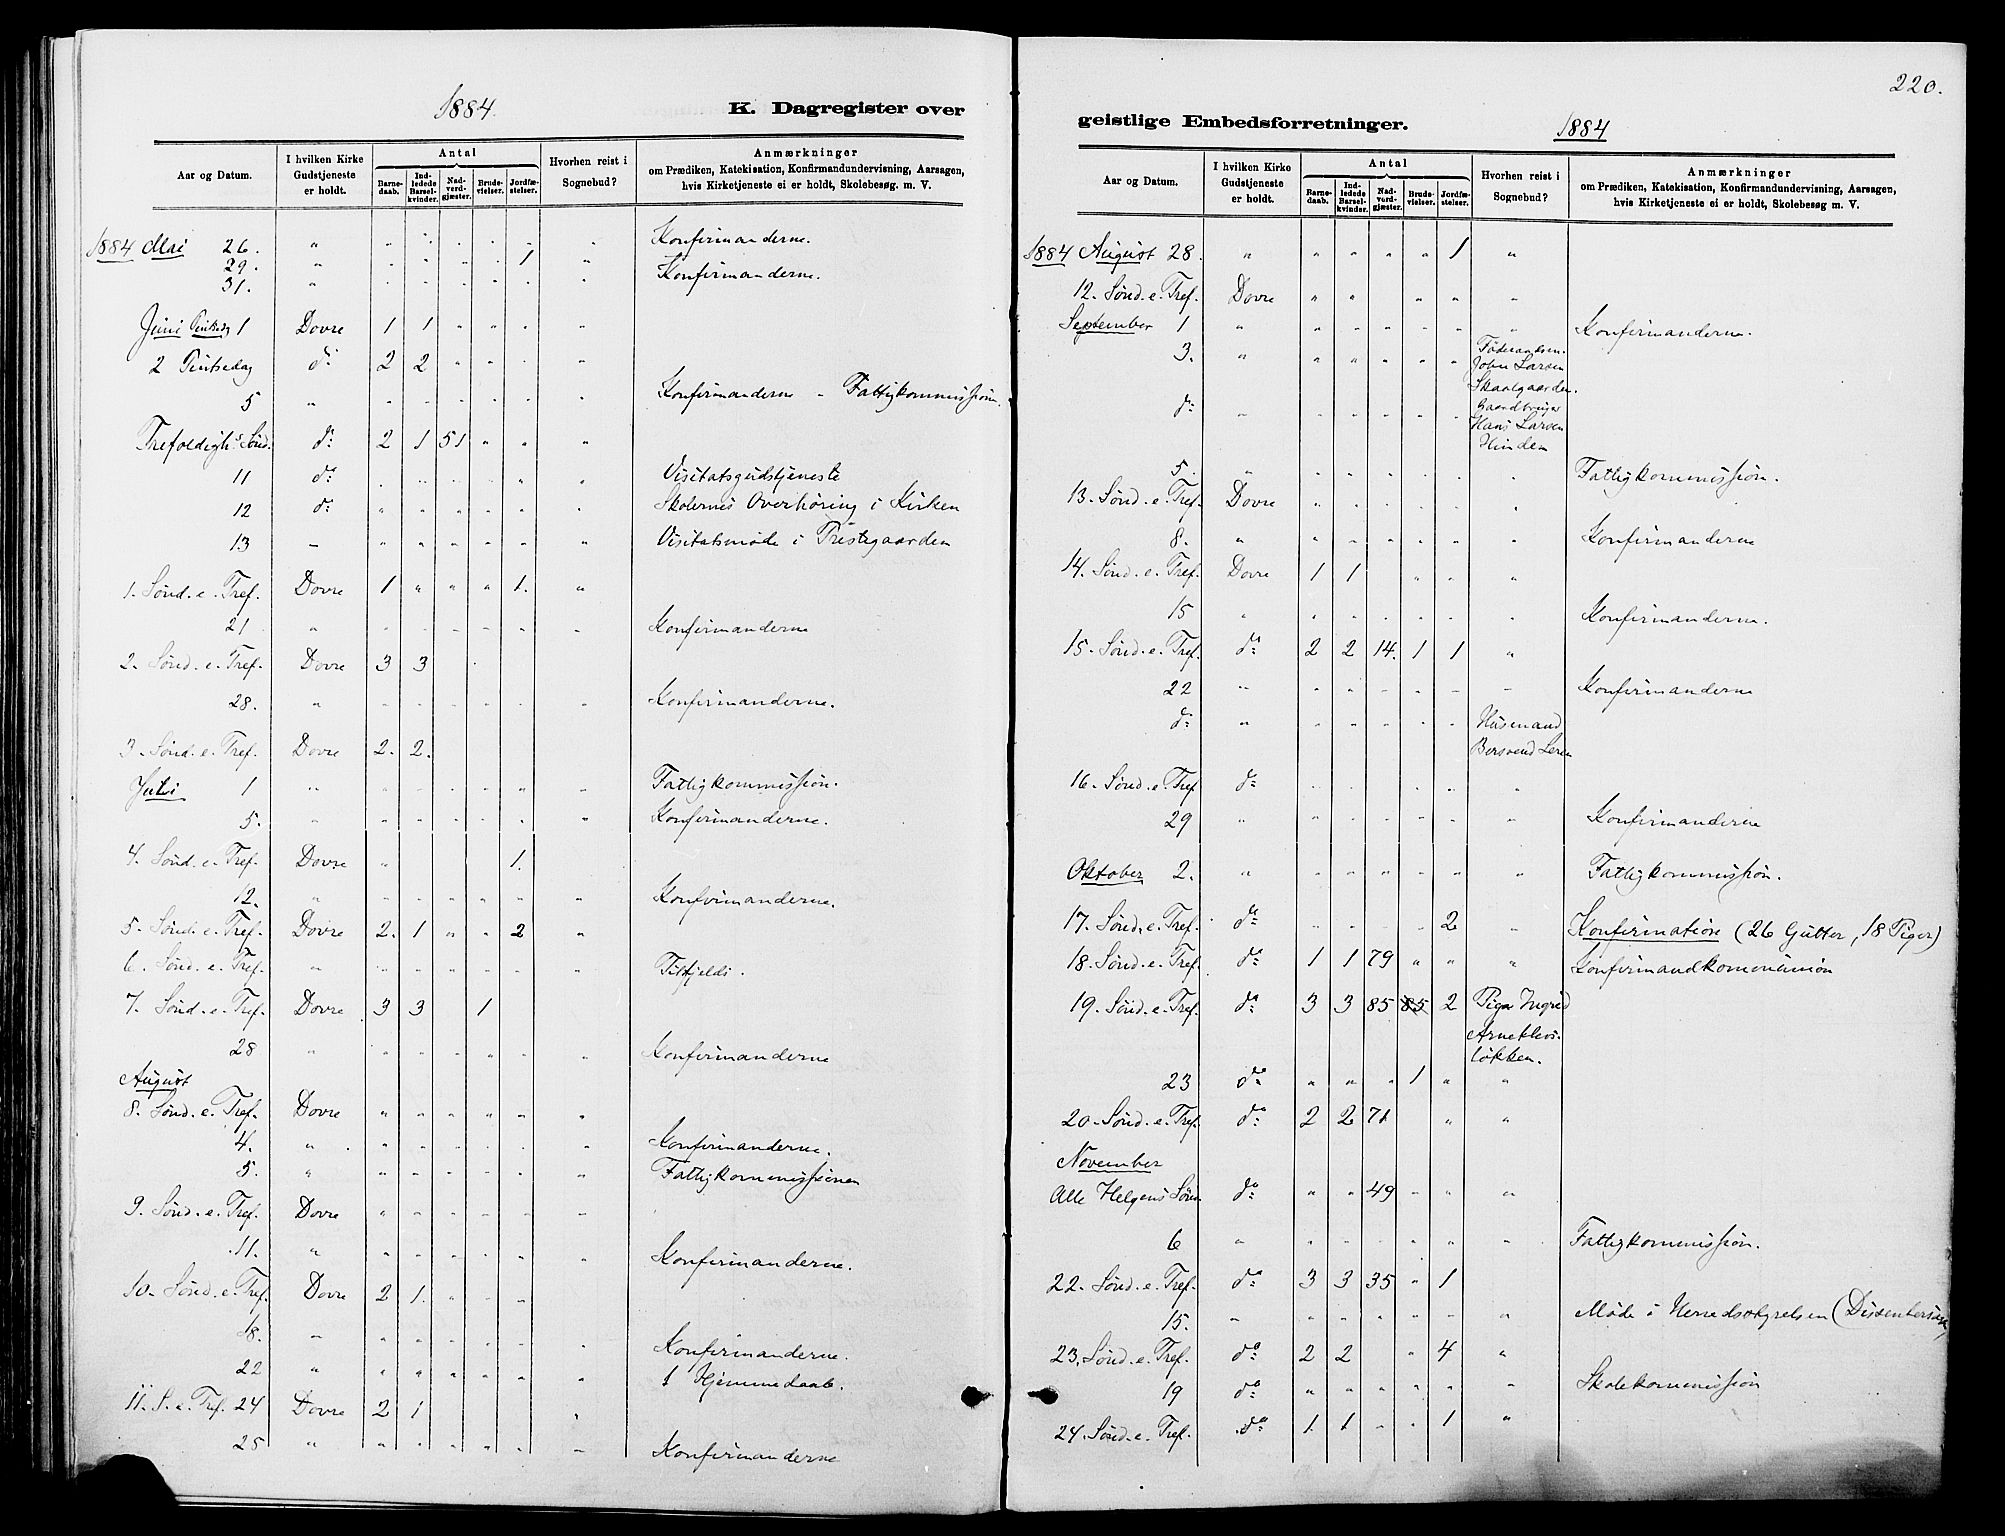 1884
K. Dagregister over
Aar og Datum.
I hvilken Kirke Gudstjeneste er holdt.
Antal
Barnedaab.
Indledede Barselkvinder.
Nadverdgjæster.
Brudevielser.
Jordfæstelser.
Hvorhen reist i Sognebud?
Anmærkninger
om Prædiken, Katekisation, Konfirmandundervisning, Aarsagen,
hvis Kirketjeneste ei er holdt, Skolebesøg m. V.
1884 Mai 26. " " " " " " " Konfirmanderne.
29. " " " " " 1 "
31. " " " " " " " Konfirmanderne.
Juni Pintsedag 1 Dovre 1 1 " " " "
2 Pintsedag do 2 2 " " " "
5 " " " " " " " Konfirmanderne - Fattigkommission.
Trefoldigh.s Sønd. do 2 1 51 " " "
11 do " " " " " " Visitatsgudstjeneste
12 do " " " " " " Skolernes Overhøring i Kirken
13 - " " " " " " Visitatsmøde i Præstegaarden
1. Sønd. e. Tref. Dovre 1 " " " 1. "
21 " " " " " " " Konfirmanderne
2. Sønd. e. Tref. Dovre 3 3
28. " " " " " " " Konfirmanderne.
3. Sønd. e. Tref. Dovre 2. 2.
Juli 1 " " " " " " " Fattigkommission.
5. " " " " " " " Konfirmanderne.
4. Sønd. e. Tref. Dovre " 1.
12. " " " " " " " Konfirmanderne.
5. Sønd. e. Tref. Dovre 2. 1 " " 2 "
6. Sønd. e. Tref. " " " " " " " Tilfjelds.
7. Sønd. e. Tref. Dovre 3 3 1
28 " " " " " " " Konfirmanderne
August
8. Sønd. e. Tref. Dovre " " " " " "
4. " " " " " " " Konfirmanderne.
5. " " " " " " " Fattigkommissionen
9. Sønd. e. Tref. Dovre " " " " " "
11. " " " " " " " Konfirmanderne.
10. Sønd. e. Tref. Dovre 2 1. " " "
18. " " " " " " " Konfirmanderne.
22 " " " " " " " 1 Hjemmedaab.
11. S. e. Tref. 24 Dovre 2 1 "
25 " " " " " " " Konfirmanderne
220.
geistlige Embedsforretninger.
1884
Aar og Datum.
I hvilken Kirke Gudstjeneste er holdt.
Antal
Barnedaab.
Indledede Barselkvinder.
Nadverdgjæster.
Brudevielser.
Jordfæstelser.
Hvorhen reist i Sognebud?
Anmærkninger
om Prædiken, Katekisation, Konfirmandundervisning, Aarsagen,
hvis Kirketjeneste ei er holdt, Skolebesøg m. V.
1884 August 28. " " " " " 1 "
12. Sønd. e. Tref. Dovre " " " " "
September 1 " " " " " " " Konfirmanderne.
3. " " " " " " John Larsen Skaalgaarden.
do " " " " " " Gaardbruger Hans Larsen Hinden
5. " " " " " " " Fattigkommission.
13. Sønd. e. Tref. Dovre " " " " " "
8. " " " " " " " Konfirmanderne
14. Sønd. e. Tref. Dovre 1 1 " " "
15 " " " " " " " Konfirmanderne.
15. Sønd. e. Tref. do 2 2 14. 1 1 "
22 " " " " " " " Konfirmanderne
do " " " " " " Husmand
16. Sønd. e. Tref do " " " " " "
29 " " " " " " " Konfirmanderne
Oktober 2. " " " " " " " Fattigkommission.
17. Sønd. e. Tref. do " " " " 2 " Konfirmation (26 Gutter, 18 Piger)
18. Sønd. e. Tref. do 1 1 79 " " " Konfirmandkommunion
19. Sønd. e. Tref. do 3 3 85 85 2 Pige Ingrid
løkken.
23 do " " " 1 " "
20. Sønd. e. Tref. do 2 2 71 " "
November
Alle Helgens Sønd. do " " 49 " " "
6 " " " " " " " Fattigkommission.
22. Sønd. e. Tref. do 3 3 35 " 1
15. " " " " " " " Møde i Herredsstyrelsen
23. Sønd. e. Tref. do 2 2 " 4 "
19 do " " " " " " Skolekommission
24. Sønd. e. Tref. do 1. 1 " " 1 "